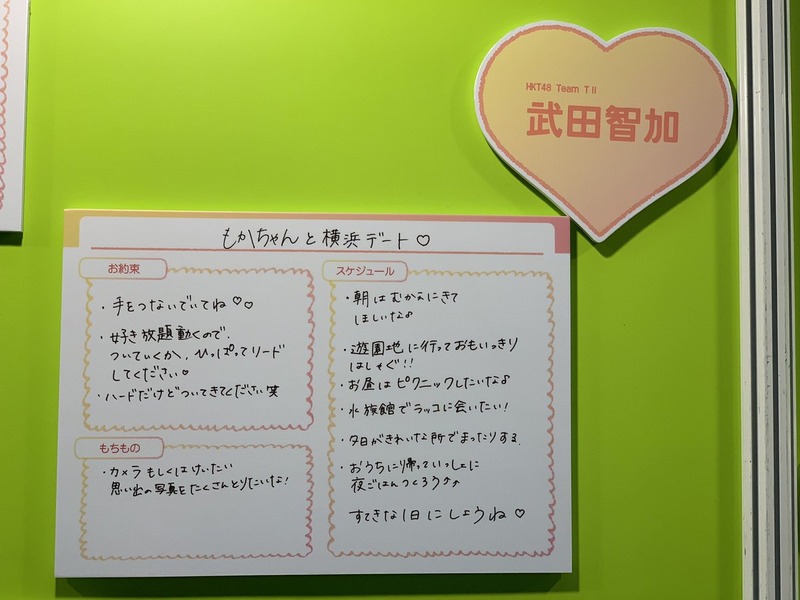 HKT48 Team TⅡ
武田智加
もかちゃんと横浜デート♡
お約束
・手をつないでいてね♡♡
・好き放題動くので、
ついていくか、ひっぱってリード
してください♡
・ハードだけどついてきてください笑
もちもの
・カメラもしくはけいたい
思い出の写真をたくさんとりたいな!
スケジュール
・朝はむかえにきて
ほしいな♪
・遊園地に行っておもいっきり
はしゃぐ!!
・お昼はピクニックしたいな♪
・水族館でラッコに会いたい!
・夕日がきれいな所でまったりする。
・おうちに帰っていっしょに
夜ごはんつくろう↗↗
すてきな1日にしようね♡